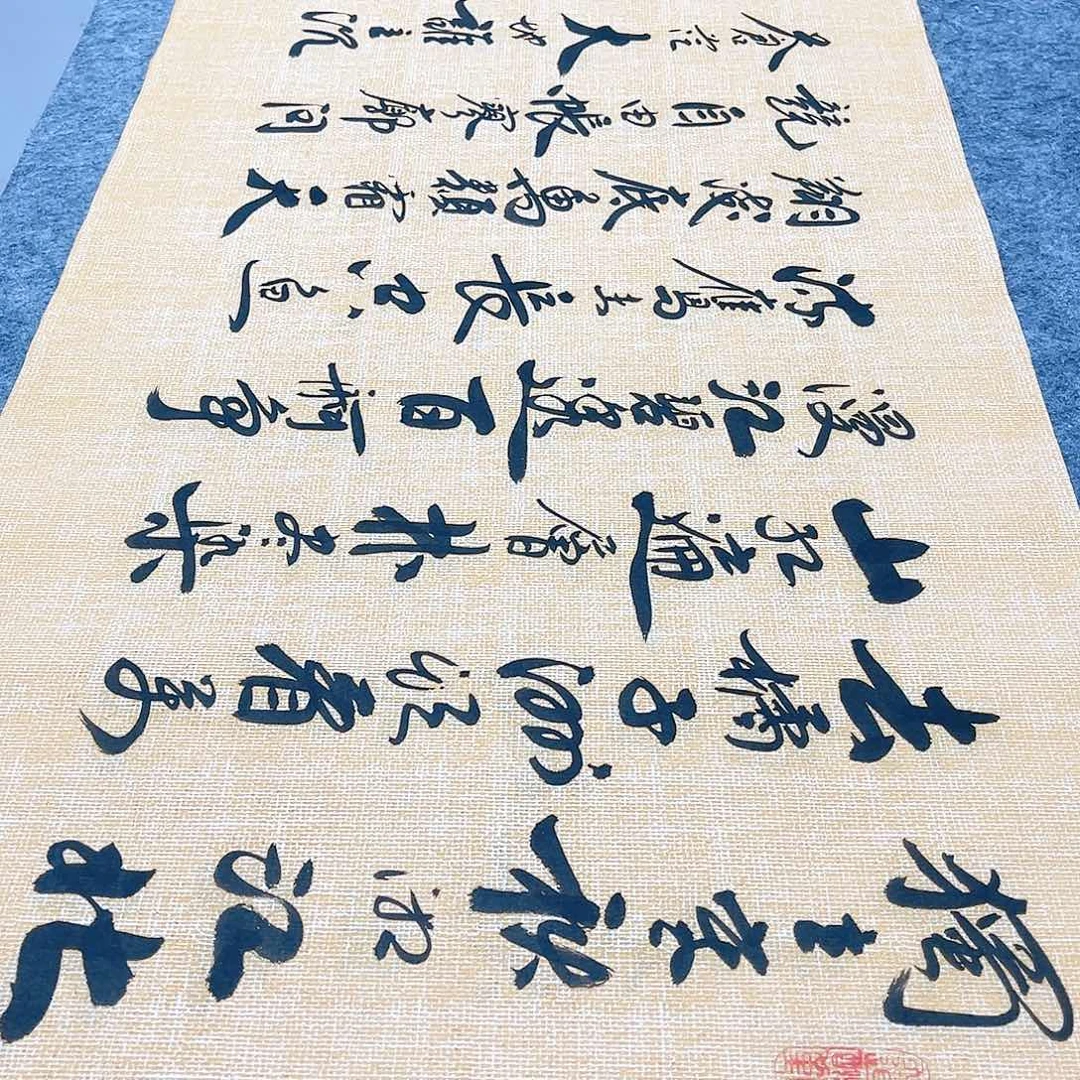 獨立寒秋湘江北
去橘子洲頭看萬
山紅遍層林尽染
漫江碧透百舸爭
流鷹击長空魚
翔淺底萬類霜天
競自由悵寥廓問
蒼茫大地誰主沉